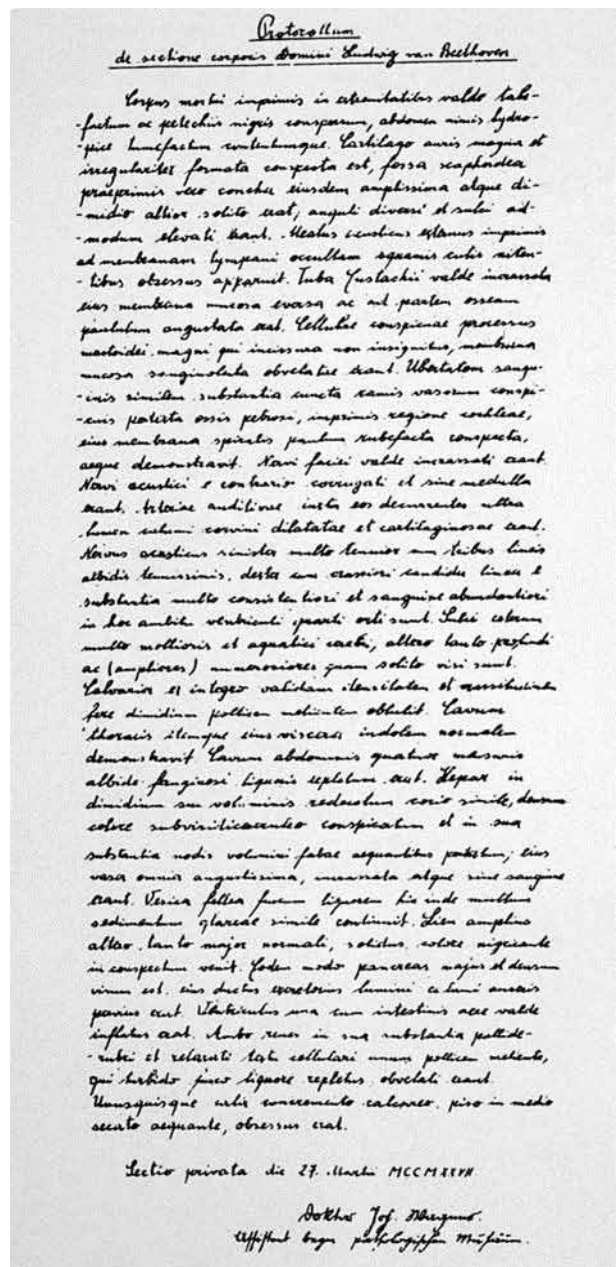 Protocollum
de sectione corporis Domini Ludwig van Beethoven
Corpus mortui imprimis in extremitatibus valde tabe-
-factum ac petechiis nigris conspersum, abdomen nimis hydro-
-pice tumefactum contentumque. Cartilago auris magna et
irregulariter formata conspecta est, fossa scaphoidea
praeprimis vero concha eiusdem amplissima atque di-
-midio altior solito erat, anguli diversi et sulci ad-
-modum elevati erant. Meatus acusticus externus imprimis
ad membranam tympani occultam squamis cutis niten-
-tibus obsessus apparuit. Tuba Eustachii valde incrassata
eius membrana mucosa eversa ac ad partem osseam
paululum angustata erat. Cellulae conspicuae processus
mastoidei magni qui incisura non insignitus, membrana
mucosa sanguinolata obvelatae erant. Ubertatem sangu-
-inis similem substantia cuncta ramis vasorum conspi-
-cuis pertexta ossis petrosi, imprimis regione cochleae,
eius membrana spiralis paulum rubefacta conspecta,
aeque demonstravit. Nervi faciei valde incrassati erant.
Nervi acustici e contrario corrugati et sine medulla
erant. Arteriae auditivae iuxta eos decurrentes ultra
lumen calami corvini dilatatae et cartilaginosae erant.
Nervus acusticus sinister multo tenuior cum tribus lineis
albidis tenuissimis, dexter cum crassiori candida linea e
substantia multo consistentiori et sanguine abundantiori
in hoc ambitu ventriculi quarti orti sunt. Sulci
multo mollioris et aquatici cerebri, altero tanto profundi
ac (ampliores) numerosiores quam solito visi sunt.
Calvaria ex integro validam densitatem et crassitudinem
fere dimidium pollicem metientem obtulit. Cavum
thoracis itemque eius viscera indolem normalem
demonstravit. Cavum abdominis quatuor mensuris
albido liquoris repletum erat. Hepar in
dimidium sui voluminis redactum corio simile, densum
colore conspicatum et in sua
substantia nodis volumini fabae aequantibus pertextum; eius
vasa omnia angustissima, incrassata atque sine sanguine
erant. Vesica fellea fuscum liquorem hic inde multum
sedimentum glareae simile continuit. Lien amplius
altero tanto major normali, solidus, colore nigricante
in conspectum venit. Eodem modo pancreas majus et densum
visum est, eius ductus excretorius lumini calami anseris
pervius erat. Ventriculus una cum intestinis aere valde
inflatus erat. Ambo renes in sua substantia pallide-
-rubri et relaxati texti cellulari unum pollicem metiente,
qui turbido fusco liquore repletus, obvelati erant.
Unusquisque calix concremento calcareo, piso in medio
secato aequante, obsessus erat.
Sectio privata die 27. Martii MCCMXXVII
Doktor Jos. Wagner.
Assistent beym pathologischen Museum.